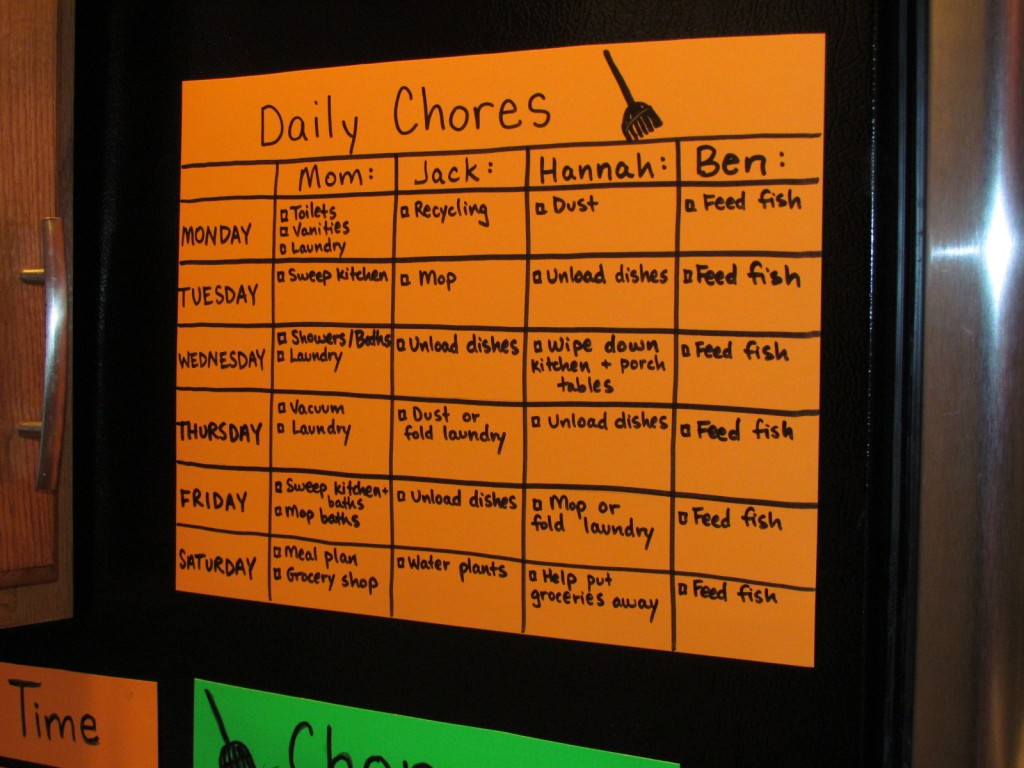 Daily Chores
Mom: Jack: Hannah: Ben:
MONDAY
Toilets
Vanities
Laundry
Recycling
Dust
Feed fish
TUESDAY
Sweep kitchen
Mop
Unload dishes
Feed fish
WEDNESDAY
Showers/Baths
Laundry
Unload dishes
Wipe down
kitchen + porch
tables
Feed fish
THURSDAY
Vacuum
Laundry
Dust or
fold laundry
Unload dishes
Feed fish
FRIDAY
Sweep kitchen +
baths
Mop baths
Unload dishes
Mop or
fold laundry
Feed fish
SATURDAY
Meal plan
Grocery shop
Water plants
Help put
groceries away
Feed fish
Time